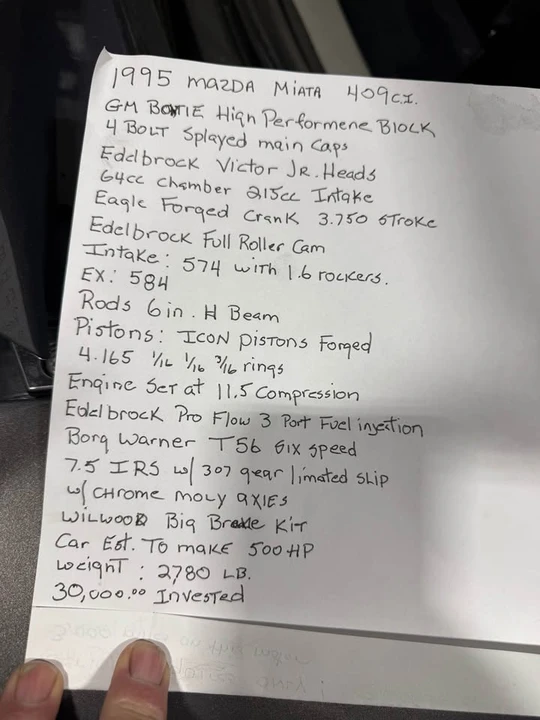 1995 MAZDA MIATA 409 C.I.
GM BOWTIE High Performene Block
4 BOLT Splayed main Caps
Edelbrock Victor JR. Heads
64cc chamber 215cc Intake
Eagle Forged Crank 3.750 STROKE
Edelbrock Full Roller Cam
Intake: 574 with 1.6 rockers.
EX: 584
Rods 6 in. H Beam
Pistons: ICON PISTONS Forged
4.165 1/16 1/16 3/16 rings
Engine Set at 11.5 Compression
Edelbrock Pro Flow 3 Port Fuel injection
Borg Warner T56 SIX speed
7.5 IRS w/ 307 gear limated slip
w/ CHROME MOLY AXIES
WILWOOD Big Brake Kit
Car Est. To make 500 HP
Weight: 2780 LB.
30,000.00 Invested